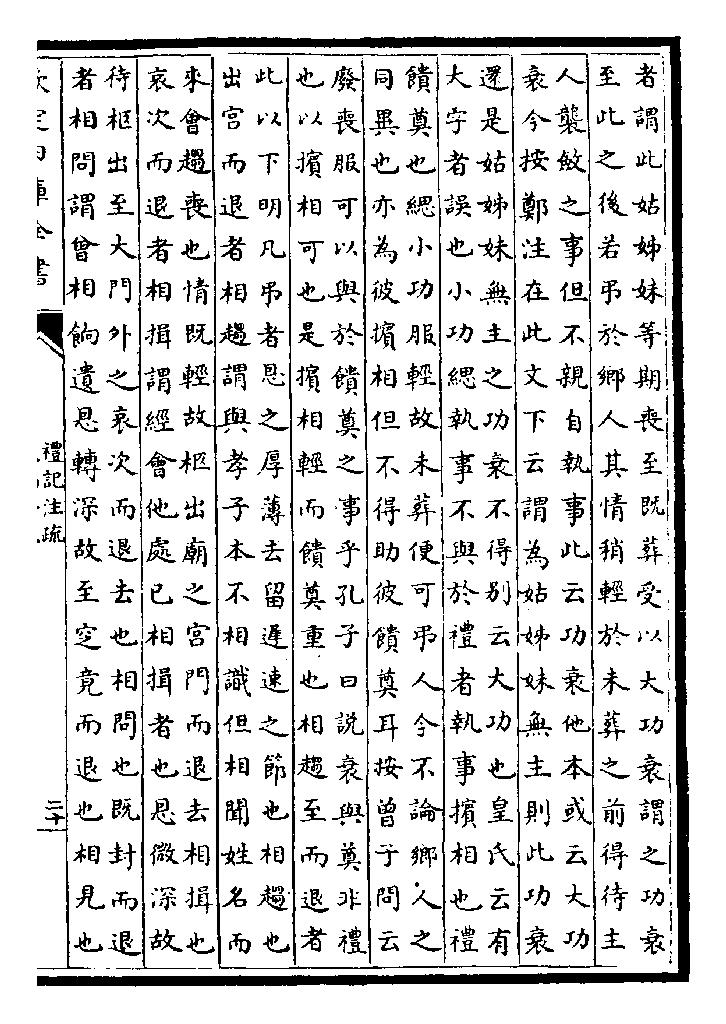 者謂此姑姊妹等期喪至既葬受以大功衰謂之功衰
至此之後若弔於鄉人其情稍輕於未葬之前得待主
人襲斂之事但不親自執事此云功衰他本或云大功
衰今按鄭注在此文下云謂為姑姊妹無主則此功衰
還是姑姊妹無主之功衰不得別云大功也皇氏云有
大字者誤也小功緦執事不與於禮者執事擯相也禮
饋奠也緦小功服輕故未葬便可弔人今不論鄉人之
同異也亦為彼擯相但不得助彼饋奠耳按曾子問云
廢喪服可以與於饋奠之事乎孔子曰說衰與奠非禮
也以擯相可也是擯相輕而饋奠重也相趨至而退者
此以下明凡弔者恩之厚薄去留遲速之節也相趨也
出宮而退者相趨謂與孝子本不相識但相聞姓名而
來會趨喪也情既輕故柩出廟之宮門而退去相揖也
哀次而退者相揖謂經會他處已相揖者也恩微深故
待柩出至大門外之哀次而退去也相問也既封而退
者相問謂曾相餉遺恩轉深故至窆竟而退也相見也
欽定四庫全書
禮記注疏
二十